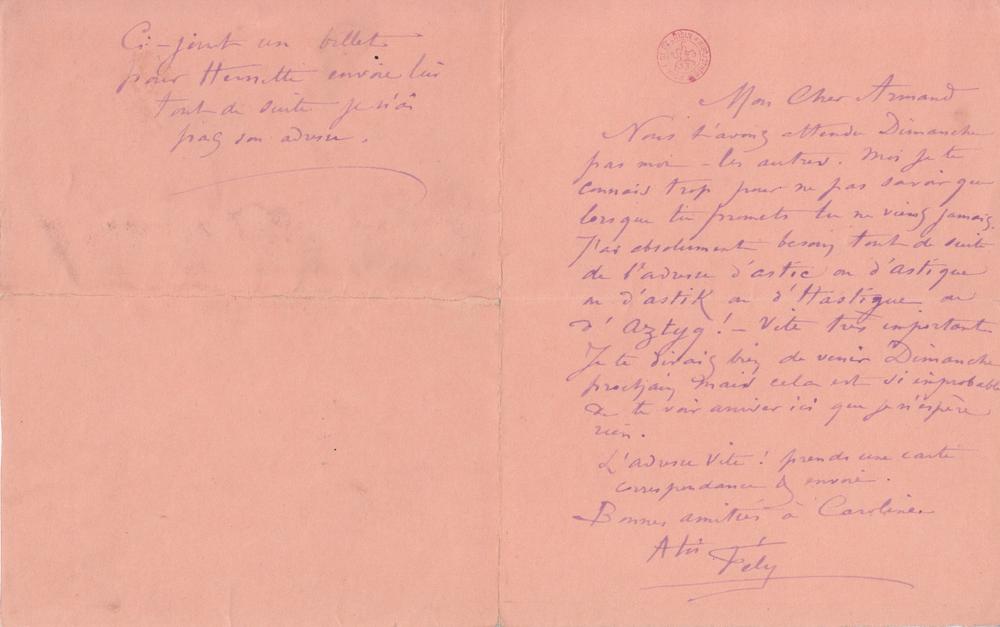 Ci-joint un billet
pour Henriette envoie lui
tout de suite je n'ai
pas son adresse.
Mon Cher Armand
Nous t'avons attendu Dimanche
pas moi – les autres. Moi je te
connais trop pour ne pas savoir que
lorsque tu promets tu ne viens jamais.
J'ai absolument besoin tout de suite
de l'adresse d'astic ou d'astique
ou d'astiK ou d'Hastigue ou
d'Aztyq! – Vite très important
Je te dirais bien de venir Dimanche
prochain mais cela est si improbable
de te voir arriver ici que je n'espère
rien.
L'adresse vite! prends une carte
correspondance & envoie.
Bonnes amitiés à Caroline
A toi Fély